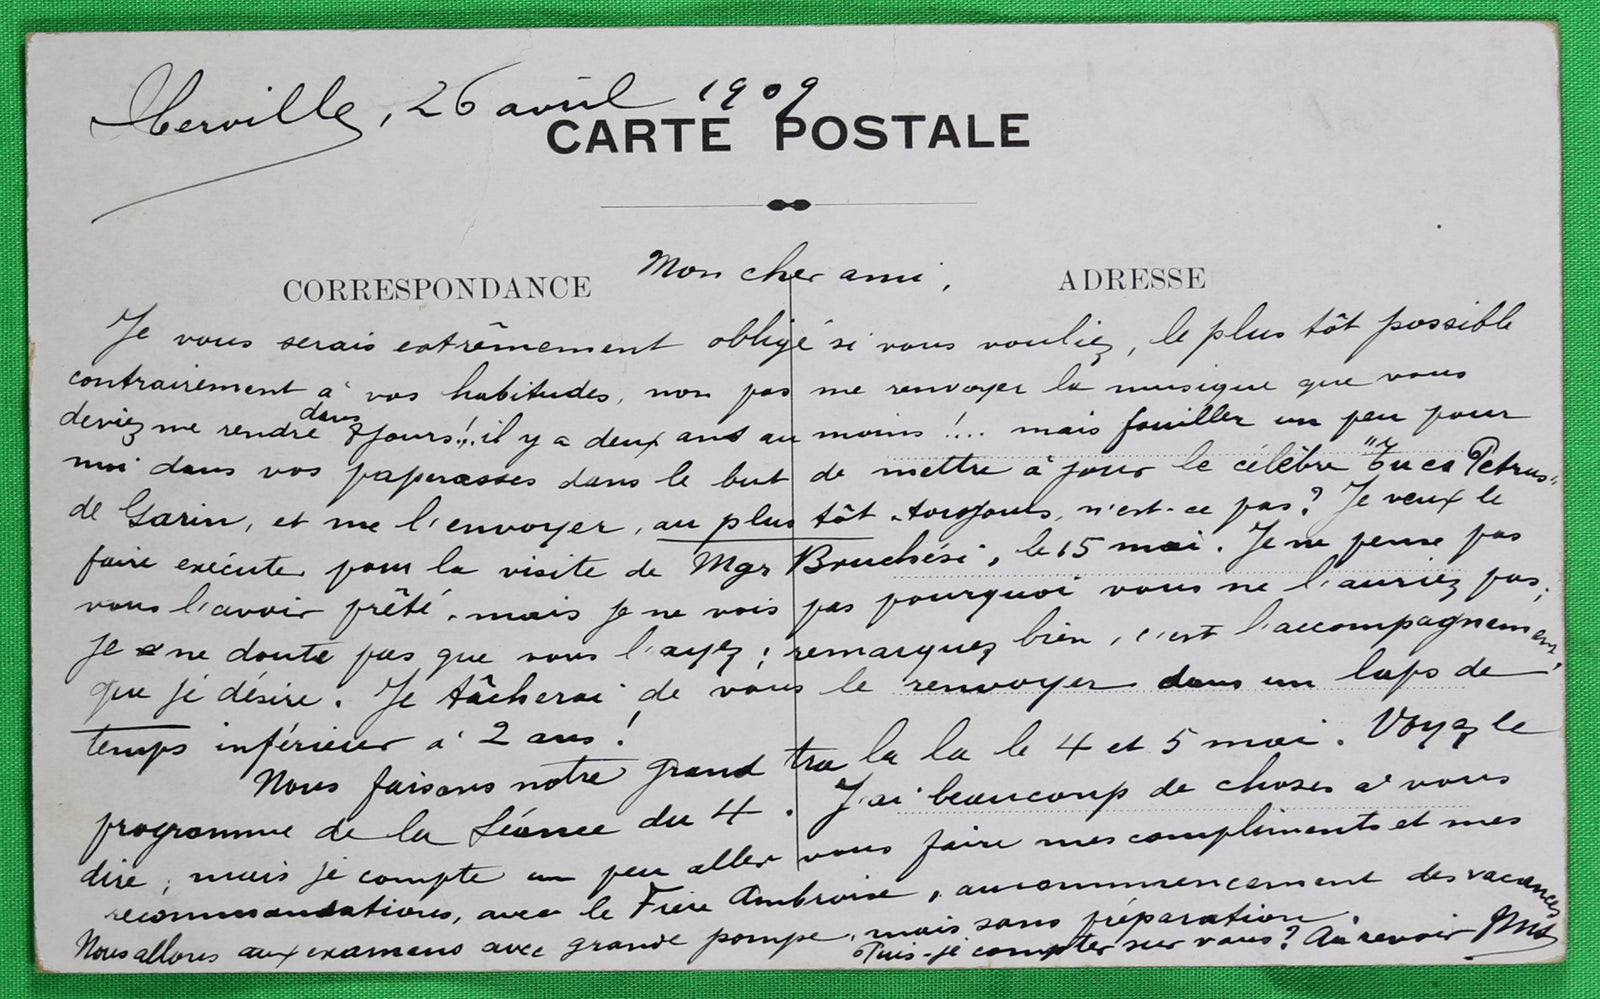 Iberville, 26 avril 1909
CARTE POSTALE
CORRESPONDANCE
ADRESSE
Mon cher ami,
Je vous serais extrêmement obligé si vous vouliez, le plus tôt possible
contrairement à vos habitudes, non pas me renvoyer la musique que vous
deviez me rendre dans 8 jours!.. il y a deux ans au moins!... mais fouiller un peu pour
moi dans vos paperasses dans le but de mettre à jour le célèbre "Tu es Petrus"
de Garin, et me l'envoyer, au plus tôt toujours, n'est-ce pas? Je veux le
faire exécuter pour la visite de Mgr Bruchési, le 15 mai. Je ne pense pas
vous l'avoir prêté, mais je ne vois pas pourquoi vous ne l'auriez pas;
je ne doute pas que vous l'ayez; remarquez bien, c'est l'accompagnement
que je désire. Je tâcherai de vous le renvoyer dans un laps de
temps inférieur à 2 ans!
Nous faisons notre grand tra la la le 4 et 5 mai. Voyez le
programme de la Séance du 4. J'ai beaucoup de choses à vous
dire; mais je compte un peu aller vous faire mes compliments et mes
recommandations, avec le Frère Ambroise, au commencement des vacances
Nous allons aux examens avec grande pompe, mais sans préparation.
Puis-je compter sur vous? Au revoir